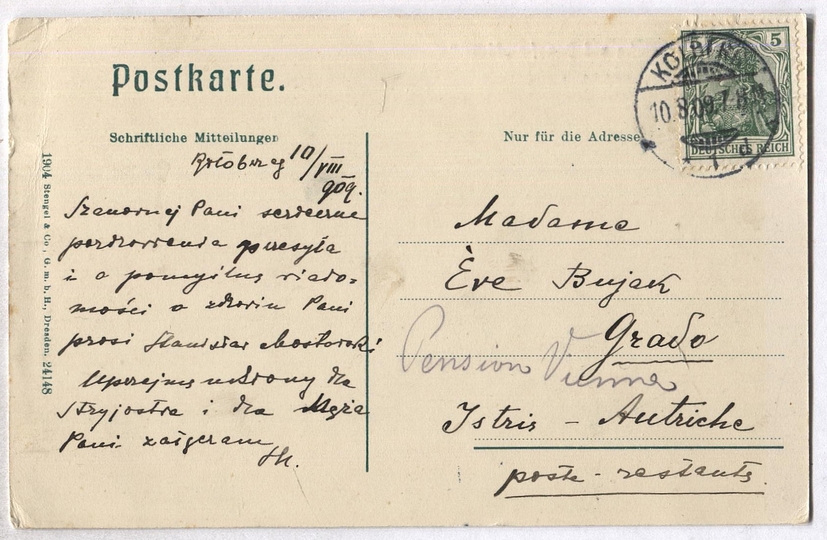 Postkarte.
Schriftliche Mitteilungen
Nur für die Adresse
5
DEUTSCHES REICH
10.8.09.7-8
1904 Stengel & Co., G. m. b. H., Dresden. 24148
10/VIII
909.
Szanownej Pani serdeczne
pozdrowienia przesyła
i o pomyślną wiado-
mości o zdrowiu Pani
prosi Stanisław
Uprzejme ukłony dla
Stryjostwa i dla Męża
Pani załączam
St.
Madame
Ève Bujak
Grado
Pension Vienna
Istris - Autriche
poste-restante.